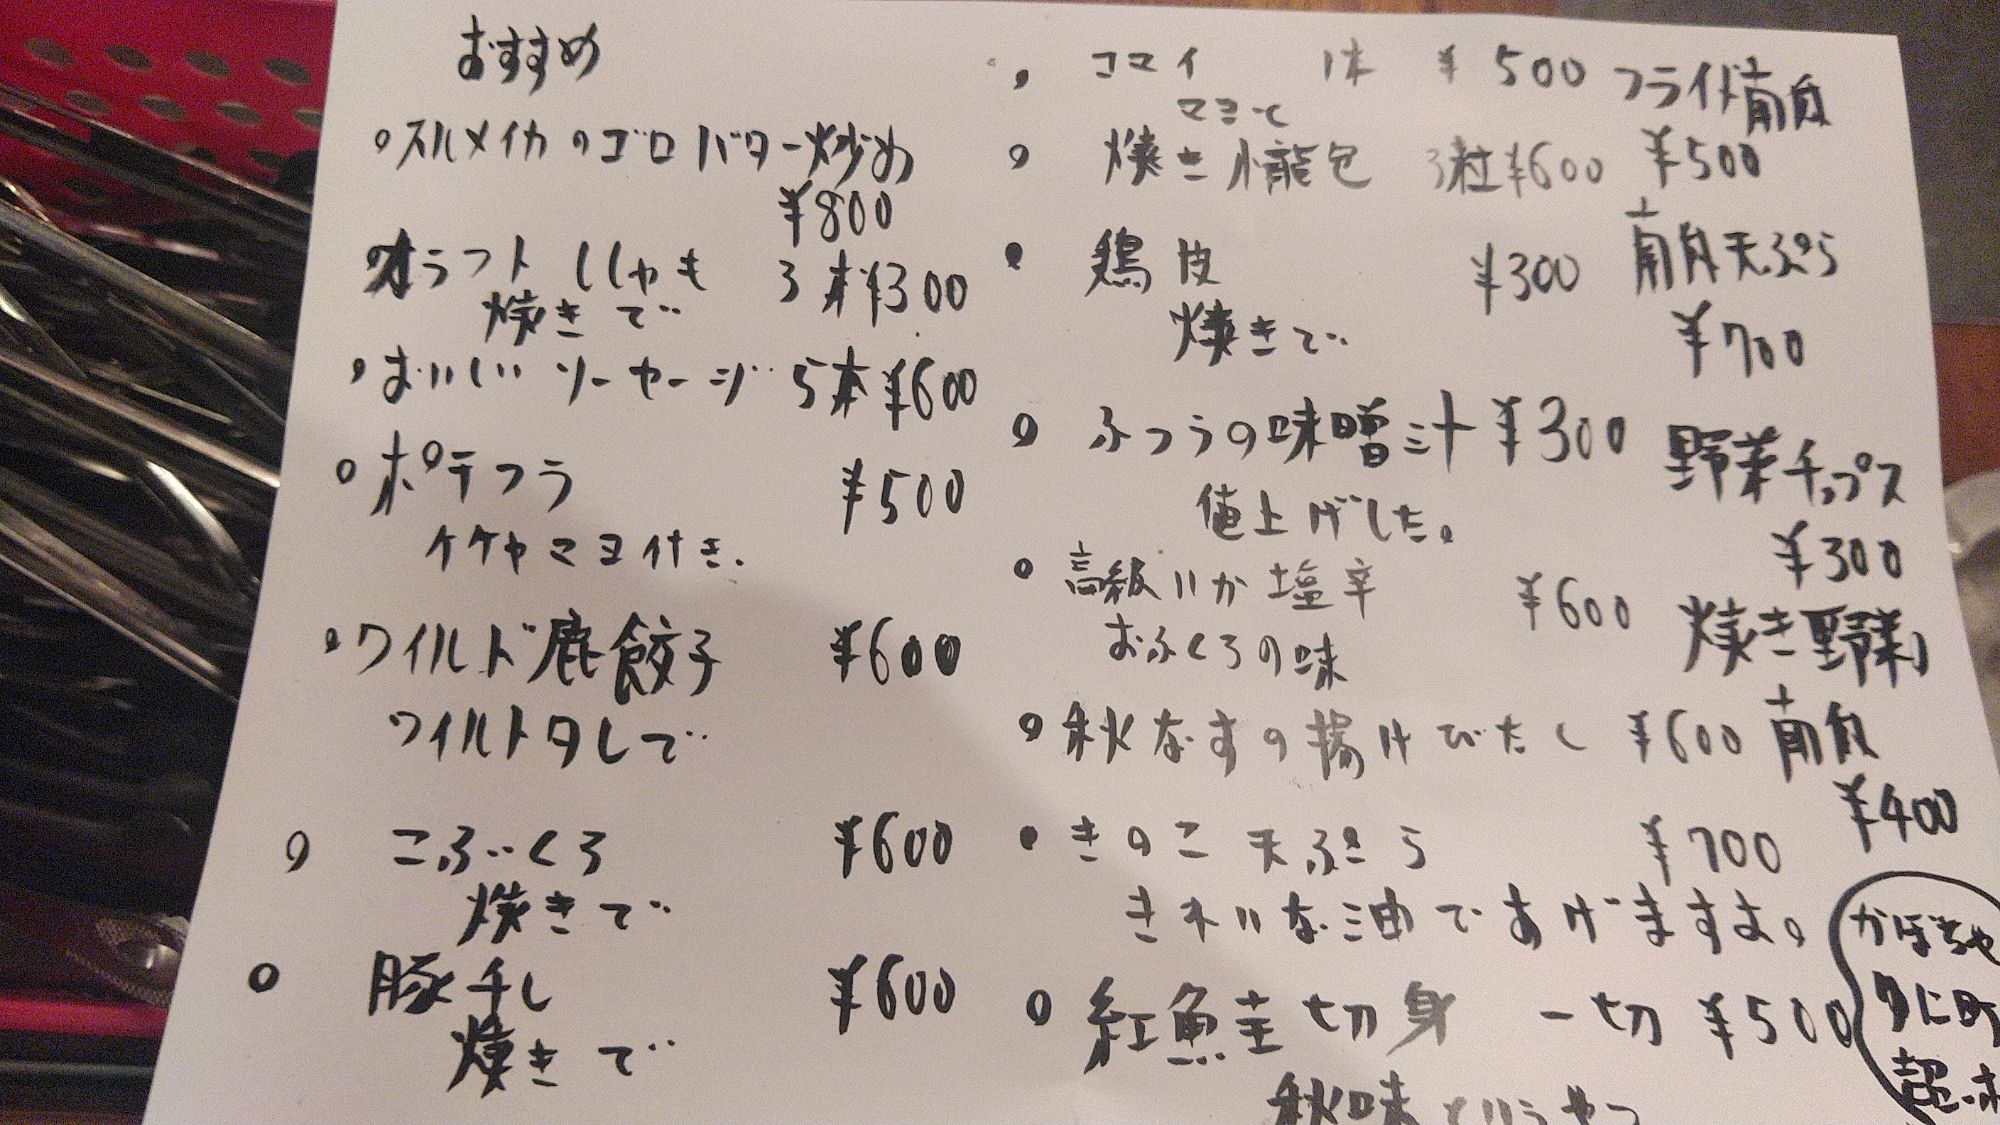 おすすめ
スルメイカのゴロバター炒め
¥800
オラフト ししゃも 3本¥300
焼きで
おいしいソーセージ 5本¥600
ポテフラ ¥500
ケケヤマヨ付き.
ワイルド鹿餃子 ¥600
ワイルドタレで
こぶくろ ¥600
焼きで
豚干し ¥600
焼きで
コマイ 1本 ¥500
マヨで
焼き小龍包 3粒¥600
鶏皮 ¥300
焼きで
ふつうの味噌汁 ¥300
値上げした。
高級いか塩辛 ¥600
おふくろの味
秋なすの揚げびたし ¥600
きのこ 天ぷら ¥700
きれいな油であげますよ。
紅鮭 切身 一切 ¥500
秋味というやつ
フライド
¥500
天ぷら
¥700
野菜チップス
¥300
焼き野菜
¥400
かぼちゃ